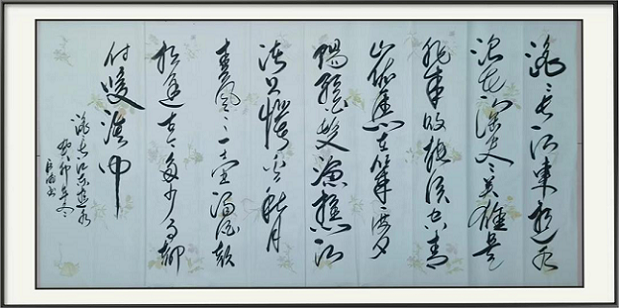 滚滚长江東逝水
浪花淘尽英雄是
非成败转头空青
山依旧在幾度夕
阳红白髮渔樵江
渚上惯看秋月
春风一壶浊酒喜
相逢古今多少事都
付笑谈中
滚滚长江东逝水
癸卯年冬